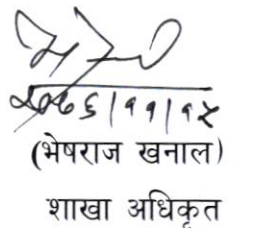 २०७६|११|१५
(भेषराज खनाल)
शाखा अधिकृत